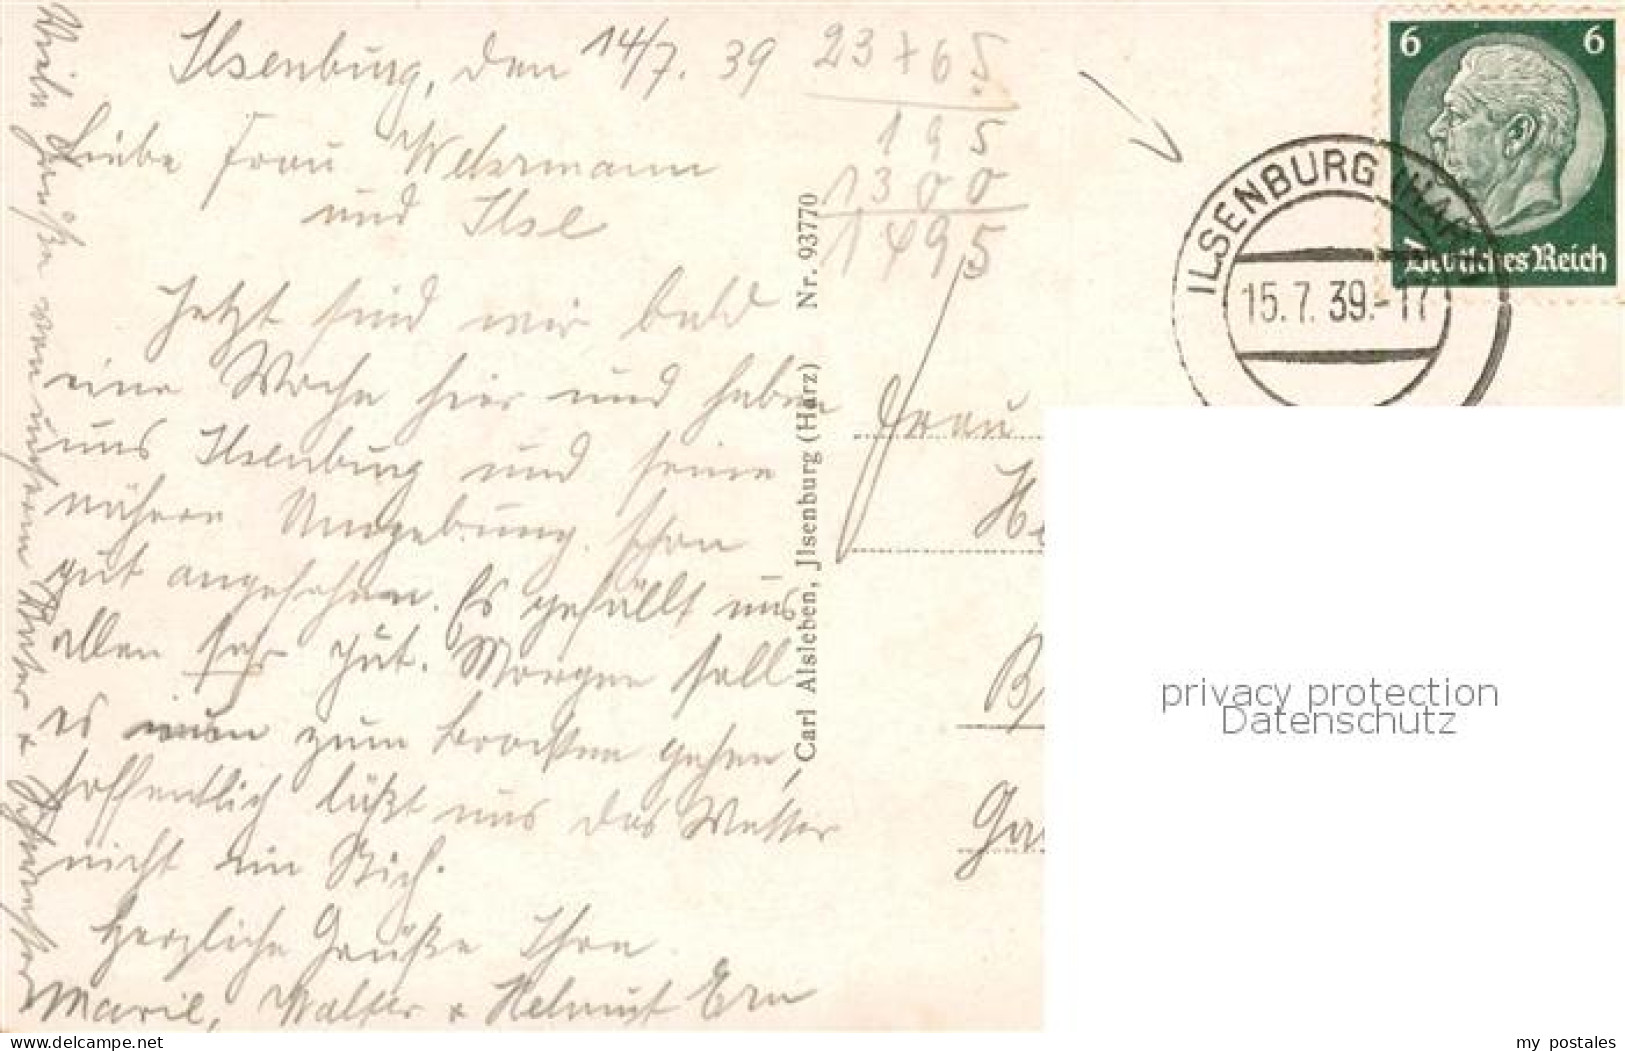 Ilsenburg, den 14/7. 39
Liebe Frau Wehrmann
und Ilse
Jetzt sind wir bald
eine Woche hier und haben
uns Ilsenburg und seine
nähere Umgebung schon
gut angesehen. Es gefällt uns
allen sehr gut. Morgen soll
es nun zum Brocken gehen,
hoffentlich läßt uns das Wetter
nicht im Stich.
Herzliche Grüße Ihre
Marie, Walter + Helmut
Viele Grüße von unserm Vater +
23 + 65
195
1300
1495
Carl Alsleben, Jlsenburg (Harz) Nr. 93770
6 6
Deutsches Reich
ILSENBURG (HARZ
15.7.39.-17
Frau
privacy protection
Datenschutz
www.delcampe.net
my_postales